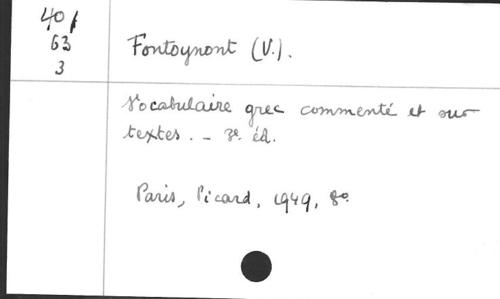 40
63
3
Fontoynont (V.).
Vocabulaire grec commenté et sur
textes. - 3e. éd.
Paris, Picard, 1949, 8º.